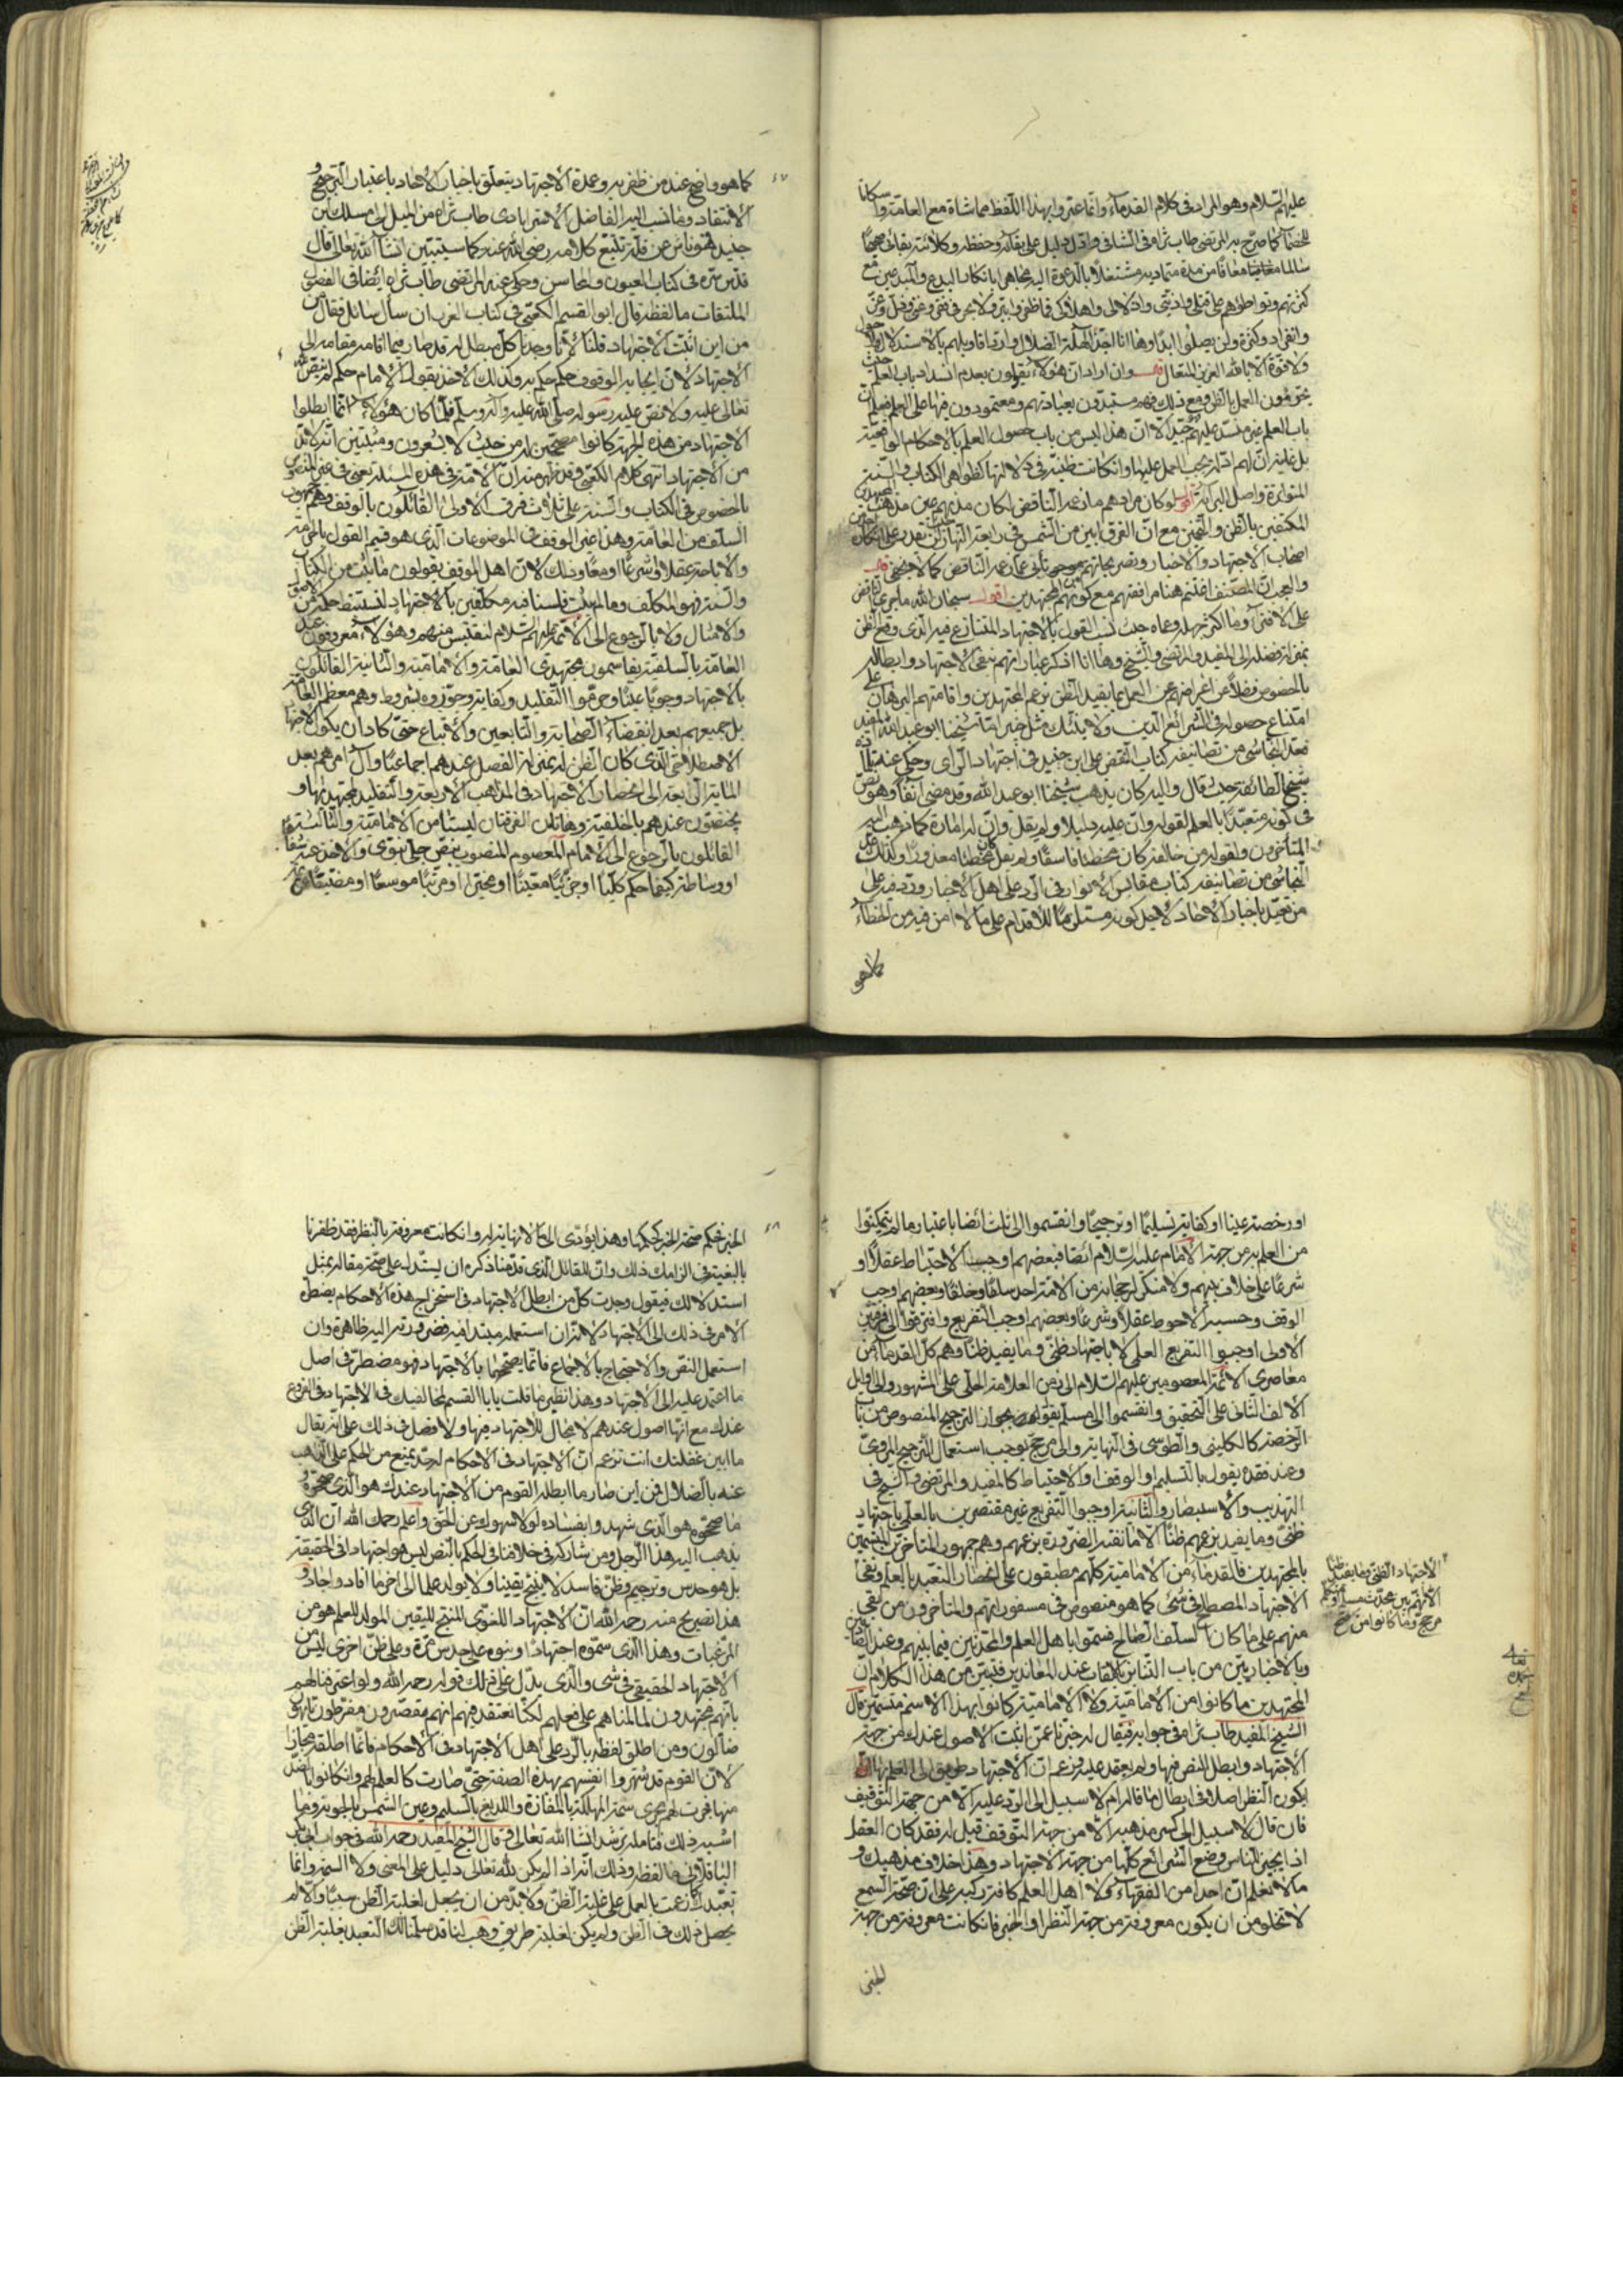 عليهم السلام وهو المراد في كلام القدماء وانما عبروا بهذا اللفظ مماشاة مع العامة واسكاتا
للخصماء كما صرح به المرتضى طاب ثراه في الشافي وادل دليل على بقائه وحفظه وكلائته بقائي صحيحا
سالما معافا من مدة متمادية مشتغلا بالدعوة اليه مجاهرا بانكار البدع والمبدعين مع
كثرتهم وتواطؤهم على قتلي واذيتي واذلالي
وانفراد وكثرة ولن يصلوا ابدا وها انا اجذ لهلة الضلال وارد اقاويلهم بالاستدلال ولا حول
ولا قوة الا بالله العزيز المتعال وان اراد ان هؤلاء يقولون بعدم انسداد باب العلم حيث
يحرمون العمل بالظن ومع ذلك فهم مستبدون بعباداتهم ومعتمدون فيها على العلم فيعلم ان
باب العلم غير منسد عليهم جيد الا ان هذا ليس من باب حصول العلم بالاحكام الواقعية
بل غايته ان لهم ادلة يجب العمل عليها وان كانت ظنية في دلالتها كظواهر الكتاب والسنة
المتواترة واصل البراءة اقول لو كان مرادهم ما زعمه الناقض لكان مذهبهم عين مذهب المجتهدين
المكتفين بالظن والتخمين مع ان الفرق ابين من الشمس في رابعة النهار
اصحاب الاجتهاد والاخبار وتصريحاتهم تأبى عما زعم الناقض كما لا يخفى قال
والعجب ان المصنف اغتنم هنا موافقتهم مع كونهم من المجتهدين اقول سبحان الله ما اجرء الناقض
على الافتراء وما اكثر جهله وعماه حيث نسب القول بالاجتهاد المتنازع فيه الذي وقع الظن
بمن له فضل الى المفيد والمرتضى والشيخ وها انا اذكر عباراتهم بنفي الاجتهاد وابطاله
بالخصوص فضلا عن اعراضهم عن العمل بما يفيد الظن بزعم المجتهدين واقامتهم البرهان على
امتناع حصوله في الشرائع الدين ولا ينبئك مثل خبير اما شيخنا ابو عبد الله المفيد
فعد النجاشي من تصانيفه كتاب النقض على ابن جنيد في اجتهاد الراي وحكى عنه
شيخ الطائفة حيث قال واليه كان يذهب شيخنا ابو عبد الله وقد مضى آنفا وهو نص
في كونه متعبدا بالعلم لقوله وان عليه دليلا ولم يقل وان له امارة كما ذهب اليه
المتأخرون ولقوله من خالفه كان مخطئا فاسقا ولم يقل كان مخطئا معذورا وكذلك عد
النجاشي من تصانيفه كتاب مقابس الانوار في الرد على اهل الاخبار وردد فيه على
من تعبد باخبار الآحاد لاجل كونه مستلزما للاقدام على ما لا امن فيه من الخطاء
كما هو
كما هو واضح عند من ظفر به وعمدة الاجتهاد يتعلق باخبار الآحاد باعتبار الترجيح و
الانتقاد وما نسب اليه الفاضل الاسترابادي طاب ثراه من الميل الى مسلك ابن
جنيد فهو ناش عن قلة تتبع كلامه رضي الله عنه كما سيتبين انشاء الله تعالى قال
قدس سره في كتاب العيون والمحاسن وحكى عنه المرتضى طاب ثراه ايضا في الفصول
الملتقطات ما لفظه قال ابو القسم الكعبي في كتاب الغرر ان سأل سائل فقال من
من اين اثبت الاجتهاد قلنا لانا وجدنا كل مبطل له قد صار فيما اقامه مقامه الى
الاجتهاد لان ايجابه الوقوف حكم حكم به وكذلك الاخذ بقول الامام حكم لم ينص الله
تعالى عليه ولا نص عليه رسوله صلى الله عليه وآله وسلم فلما كان هؤلاء انما ابطلوا
الاجتهاد من هذه الجهة كانوا مصححين له من حيث لا يشعرون ومثبتين انه لا بد
من الاجتهاد انتهى كلام الكعبي وقد ظهر منه ان الامة في هذه المسئلة يعني في غير المنصوص
بالخصوص في الكتاب والسنة على ثلاث فرق الاولى القائلون بالوقف وهم جمهور
السلف من العامة وهذا غير الوقف في الموضوعات الذي هو قسيم القول بالحرمة
والاباحة عقلا او شرعا او معا وذلك لان اهل الوقف يقولون ما ثبت من الكتاب
والسنة فهو المكلف وما لم يثبت فلسنا فيه مكلفين بالاجتهاد لنستنبط حكمه من الاصول
والامثال ولا بالرجوع الى الائمة عليهم السلام لنقتبس منهم وهؤلاء معروفون عند
العامة بالسلفية يقاسمون مجتهدي العامة والامامية والثانية القائلون
بالاجتهاد وجوبا عينا وحرموا التقليد وكفاية وجوزوه بشروط وهم معظم العامة
بل جميعهم بعد انقضاء الصحابة والتابعين والاتباع حتى كاد ان يكون الاجتهاد
الاصطلاحي الذي كان الظن لم يغن له الفصل عندهم اجماعيا وآل امرهم بعد
الماية الرابعة الى انحصار الاجتهاد في المذاهب الاربعة والتقليد لمجتهديها و
يختصون عندهم بالخلفية وهاتان الفرقتان ليستا من الامامية والثالثة هم
القائلون بالرجوع الى الامام المعصوم المنصوب بنص جلي نبوي والاخذ عنه شفاها
او وساطة كيفما حكم كليا او جزئيا معينا او مخيرا او مرتبا موسعا او مضيقا
او رخصة عينا او كفاية تسليما او ترجيحا وانقسموا الى ثلث ايضا باعتبار ما لم يتمكنوا
من العلم به من جهة الامام عليه السلام ايضا فبعضهم اوجب الاحتياط عقلا او
شرعا على خلاف بينهم ولا منكر لرجحانه من الامة احد سلفا وخلفا وبعضهم اوجب
الوقف وحسبه الاحوط عقلا وشرعا وبعضهم اوجب التفريع وافترقوا الى فرقتين
الاولى اوجبوا التفريع العلمي لا باجتهاد ظني وما يفيد ظنا وهم كل القدماء من
معاصري الائمة المعصومين عليهم السلام الى زمن العلامة الحلي على المشهور والى اوايل
الالف الثاني على التحقيق وانقسموا الى مسلم يقول بجواز الترجيح المنصوص من باب
الرخصة كالكليني والطوسي في النهاية والى مرجح يوجب استعمال الترجيح المروي
وعند فقده يقول بالتسليم او الوقف او الاحتياط كالمفيد والمرتضى والشيخ في
التهذيب والاستبصار والثانية اوجبوا التفريع غير مقتصرين بالعلم باجتهاد
ظني وما يفيد بزعمهم ظنا الا ما تقتدر الضرورة بزعمهم وهم جمهور المتأخرين المتسمين
بالمجتهدين فالقدماء من الامامية كلهم مطبقون على انحصار التعبد بالعلم ونفي
الاجتهاد المصطلح في شئ كما هو منصوص في مسفوراتهم والمتأخرون من بقي
منهم على ما كان السلف الصالح فسموا باهل العلم والمحدثين فيما بينهم وعند
وبالاخباريين من باب التنابز بالالقاب عند المعاندين فتبين من هذا الكلام ان
المجتهدين ما كانوا من الامامية ولا الامامية كانوا بهذا الاسم متسمين قال
الشيخ المفيد طاب ثراه في جوابه فيقال له خبرنا عمن اثبت الاصول عندك من جهة
الاجتهاد وابطل النص فيها ولم يعقد عليه وزعم ان الاجتهاد طريق الى العلم بها
يكون النظر اصلا في ابطال ما قاله ام لا سبيل الى الرد عليه الا من جهة التوقيف
فان قال لا سبيل الى كسر مذهبه الا من جهة التوقيف قيل له فقد كان العقل
اذا يجيز للناس وضع الشرائع كلها من جهة الاجتهاد وهذا خلاف مذهبك و
ما لا نعلم ان احدا من الفقهاء ولا اهل العلم كافة ركبه على ان صحة السمع
لا تخلو من ان يكون معروفة من جهة النظر او الخبر فان كانت معروفة من جهة
الخبر
الاجتهاد الظني وما يفيد ظنا
الخبر فحكم صحة الخبر كحكمها وهذا يؤدي الى ما لا نهاية له وان كانت معروفة بالنظر فقد ظفرنا
بالبغية في الزامك ذلك وان للقائل الذي قدمنا ذكره ان يستدل على صحة مقاله بمثل
استدلالك فيقول وجدت كل من ابطل الاجتهاد في استخراج هذه الاحكام يضطره
الامر في ذلك الى الاجتهاد لانه ان استعمله مبتدا فيه فضرورته اليه ظاهرة وان
استعمل النص والاحتجاج بالاجماع فانما يصححها بالاجتهاد فهو مضطر في اصل
ما اعتمد عليه الى الاجتهاد وهذا نظير ما قلت يا ابا القسم لمخالفيك في الاجتهاد في الفروع
عندك مع انها اصول عندهم لا مجال للاجتهاد فيها ولا فصل في ذلك على انه يقال
ما ابين غفلتك انت تزعم ان الاجتهاد في الاحكام له حد يمنع من الحكم على الذاهب
عنه بالضلال فمن اين صار ما ابطله القوم من الاجتهاد عندك هو الذي صححوه
ما صححوه هو الذي شهدوا بفساده لولا سهوك عن الحق واعلم رحمك الله ان الذي
يذهب اليه هذا الرجل ومن شاركه في خلافنا في الحكم بالنص ليس هو اجتهاد في الحقيقة
بل هو حدس وترجيم وظن فاسد لا ينتج يقينا ولا يولد علما الى آخر ما افاد واجاد و
هذا تصريح منه رحمه الله ان الاجتهاد اللغوي المنتج لليقين المولد للعلم هو من
المرغبات وهذا الذي سموه اجتهادا وبنوه على حدس مرة وعلى ظن اخرى ليس من
الاجتهاد الحقيقي في شئ والذي يدل على ذلك قوله رحمه الله ولو اعترفنا لهم
بانهم مجتهدون لما لمناهم على فعلهم لكنا نعتقد فيهم انهم مقصرون مفرطون تايهون
ضالون ومن اطلق لفظه بالرد على اهل الاجتهاد في الاحكام فانما اطلقه مجازا
لان القوم قد شهروا انفسهم بهذه الصفة حتى صارت كالعلم لهم وان كانوا اضد
منها فجرت لهم مجرى سمة المهلكة بالمفازة واللديغ بالسليم وعين الشمس بالجونة وما
اشبه ذلك فتامله ترشد انشاء الله تعالى وقال الشيخ المفيد رحمه الله في جواب ابي بكر
الباقلاني ما لفظه وذلك انه اذا لم يكن لله تعالى دليل على المعنى ولا السمة وانما
تعبدك كما زعمت بالعمل على غلبة الظن ولا بد من ان يجعل لغلبة الظن سببا والا لم
يحصل ذلك في الظن ولم يكن لغلبة طريق وهب انا قد سلمنا لك التعبد بغلبة الظن